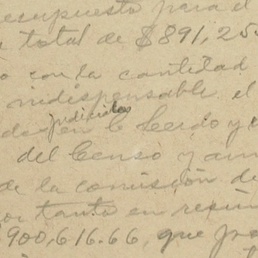 resupuesto para el
total de $891,25
o con la cantidad
indispensable el
judiciales
del Censo y am
de la comisión de
or tanto en resum
900,616.66, que pa